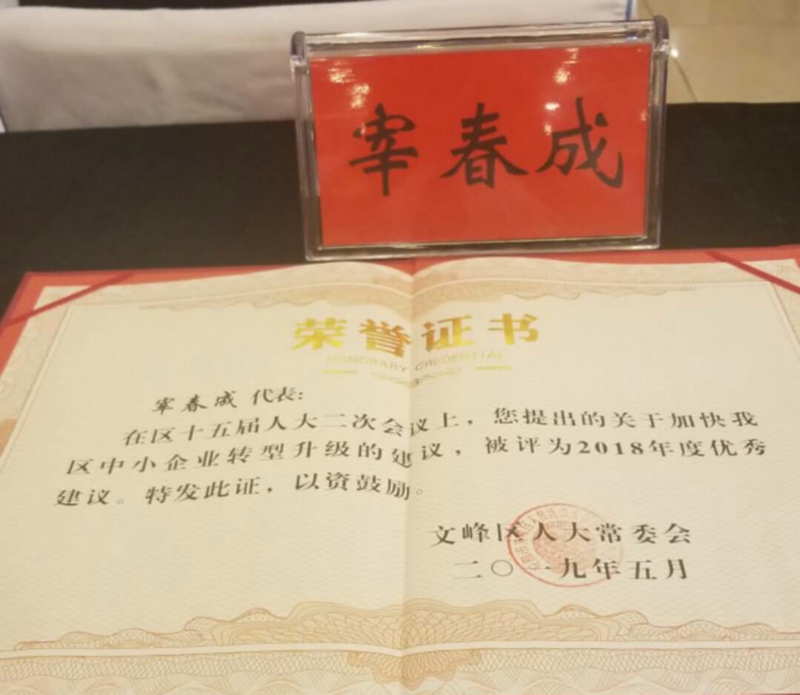 宰春成
荣誉证书
HONORARY CREDENTIAL
宰春成 代表:
在区十五届人大二次会议上，您提出的关于加快我
区中小企业转型升级的建议，被评为2018年度优秀
建议。特发此证，以资鼓励。
文峰区人大常委会
二〇一九年五月